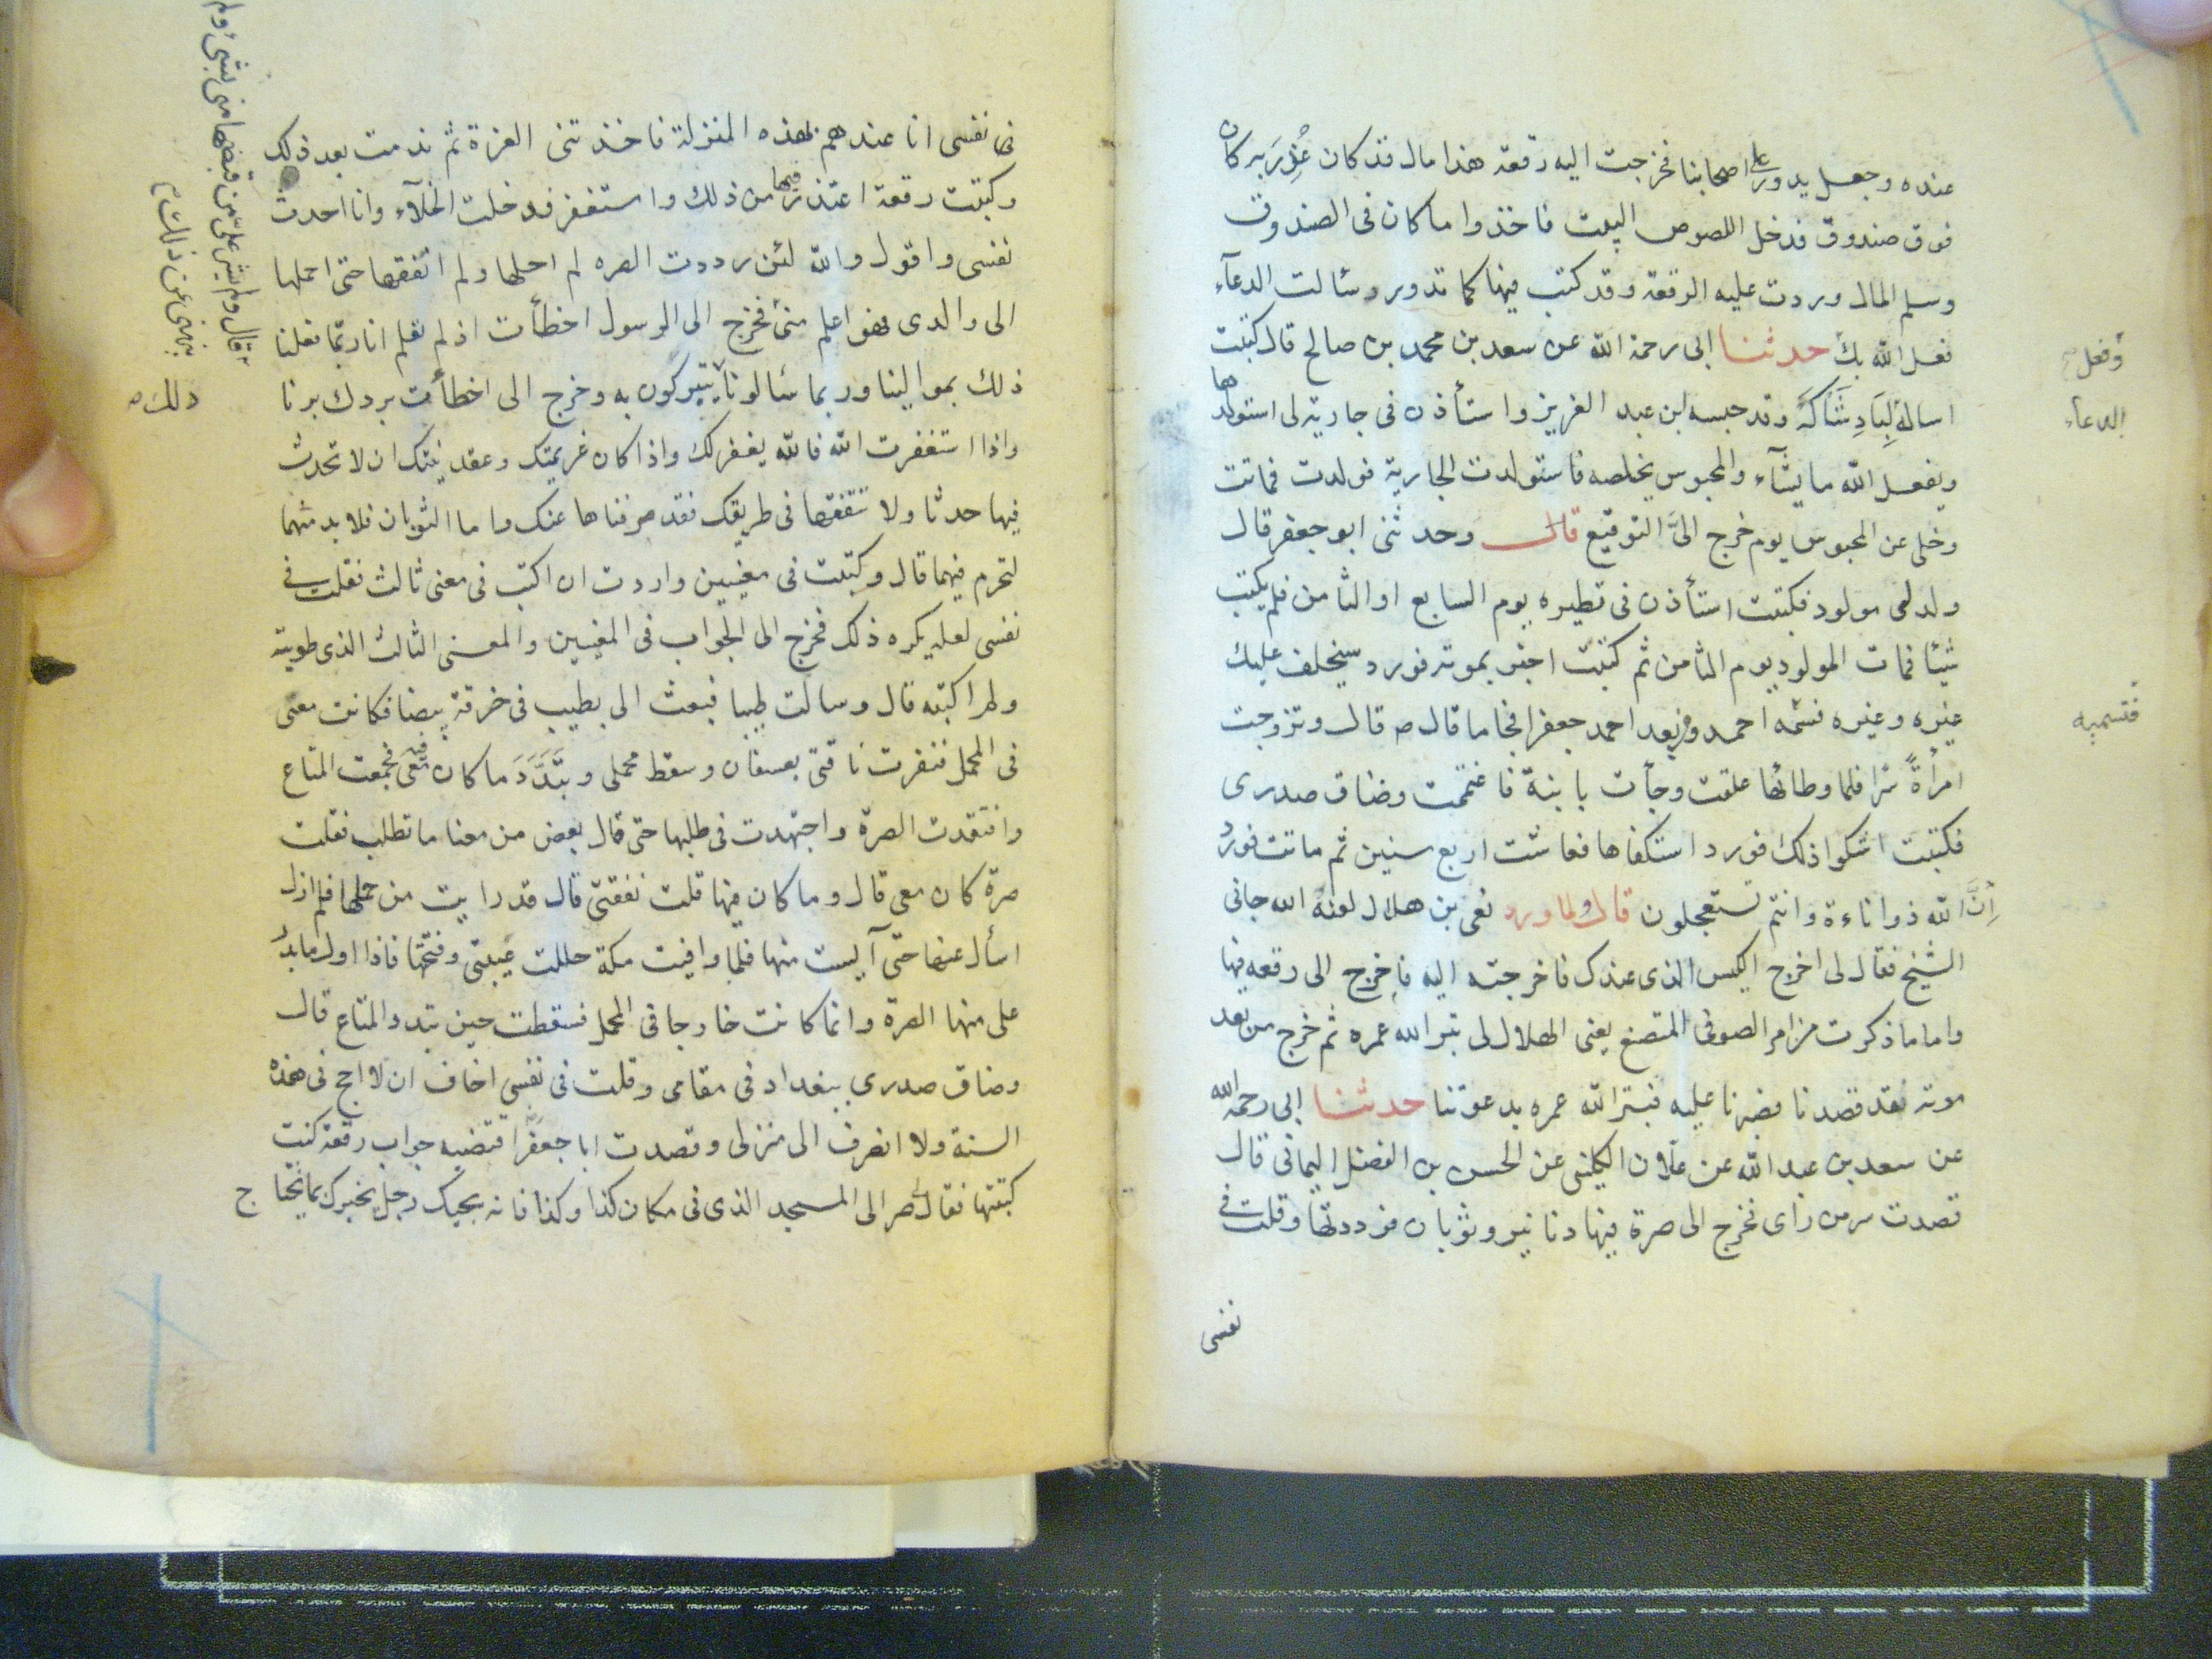 عنده وجعل يدور على اصحابنا فخرجت اليه رقعة هذا مال قد كان غُرِّرَ به كان
فوق صندوق فدخل اللصوص البيت فاخذوا ما كان فى الصندوق
وسلم المال وردت عليه الرقعة وقد كتب فيها كما تدور وسئالت الدعآء
فعل الله بك حدثنا ابى رحمة الله عن سعد بن محمد بن صالح قال كتبت
اساله لِبَادِشَاكَهْ وقد حبسه ابن عبد العزيز واستأذن فى جارية لى استولدها
ويفعل الله ما يشآء والمحبوس يخلصه فاستولدت الجارية فولدت فماتت
وخلى عن المحبوس يوم خرج الىَّ التوقيع قال وحدثنى ابو جعفر قال
ولد لى مولود فكتبت استأذن فى تطهيره يوم السابع او الثامن فلم يكتب
شيئا فمات المولود يوم الثامن ثم كتبت اخبر بموته فورد سيخلف عليك
غيره وغيره فسمّه احمد ومن بعد احمد جعفرا فجا ما قال م قال وتزوجت
امرأةً سرّا فلما وطائها علقت وجأت بابنة فاغتممت وضاق صدرى
فكتبت اشكوا ذلك فورد استكفاها فعاشت اربع سنين ثم ماتت فورد
اِنَّ الله ذو اناءة وانتم تستعجلون قال ولما ورد نعى بن هلال لعنه الله جانى
الشيخ فقال لى اخرج الكيس الذى عندك فاخرجته اليه فاخرج الى رقعه فيها
واما ما ذكرت من امر الصوفى المتصنع يعنى الهلالى بتر الله عمره ثم خرج من بعد
موته فقد قصدنا فصبرنا عليه فبتر الله عمره بدعوتنا حدثنا ابى رحمه الله
عن سعد بن عبد الله عن علان الكلينى عن الحسن بن الفضل اليمانى قال
قصدت سر من راى فخرج الى صرة فيها دنانير وثوبان فرددتها وقلت فى
نفسى
وفعل
الدعاء
فتسميه
فى نفسى انا عندهم بهذه المنزلة فاخذتنى العزة ثم ندمت بعد ذلك
وكتبت رقعة اعتذر فيها من ذلك واستغفر فدخلت الخلآء وانا احدث
نفسى واقول والله لئن رددت الصره لم احلها ولم انفقها حتى احملها
الى والدى فهو اعلم منى فخرج الى الرسول اخطأت اذ لم تعلم انا ربّما فعلنا
ذلك بموالينا وربما سئالونا يتبركون به وخرج الى اخطأت بردك برنا
واذا استغفرت الله فالله يغفر لك واذا كان عزيمتك وعقد نيتك ان لا تحدث
فيها حدثا ولا تنفقها فى طريقك فقد صرفناها عنك واما الثوبان فلا بد منهما
لتحرم فيهما قال وكتبت فى معنيين واردت ان اكتب فى معنى ثالث فقلت فى
نفسى لعله يكره ذلك فخرج الى الجواب فى المعنيين والمعنى الثالث الذى طويته
ولم اكتبه قال وسالت طيبا فبعث الى بطيب فى خرقة بيضا فكانت معى
فى المحمل فنفرت ناقتى بعسفان وسقط محملى وتَبَّدَدَ ما كان معى فجمعت المتاع
وافتقدت الصرة واجتهدت فى طلبها حتى قال بعض من معنا ما تطلب فقلت
صرة كان معى قال وما كان فيها قلت نفقتى قال قد رايت من حملها فلم ازل
اسأل عنها حتى آيست منها فلما وافيت مكة حللت عيبتى وفتحتها فاذا اول ما بدر
على منها الصرة وانما كانت خارجا فى المحمل فسقطت حين تبدد المتاع قال
وضاق صدرى ببغداد فى مقامى وقلت فى نفسى اخاف ان لا احج فى هذه
السنة ولا انصرف الى منزلى وقصدت ابا جعفر اقتضيه جواب رقعة كنت
كتبتها فقال لى صر الى المسجد الذى فى مكان كذا وكذا فانه يجيك رجل يخبرك بما تحتاج
قال ولم يشر علىّ من قبضها منى بشئ ولم
ينهنى عن ذلك م
ذلك ص